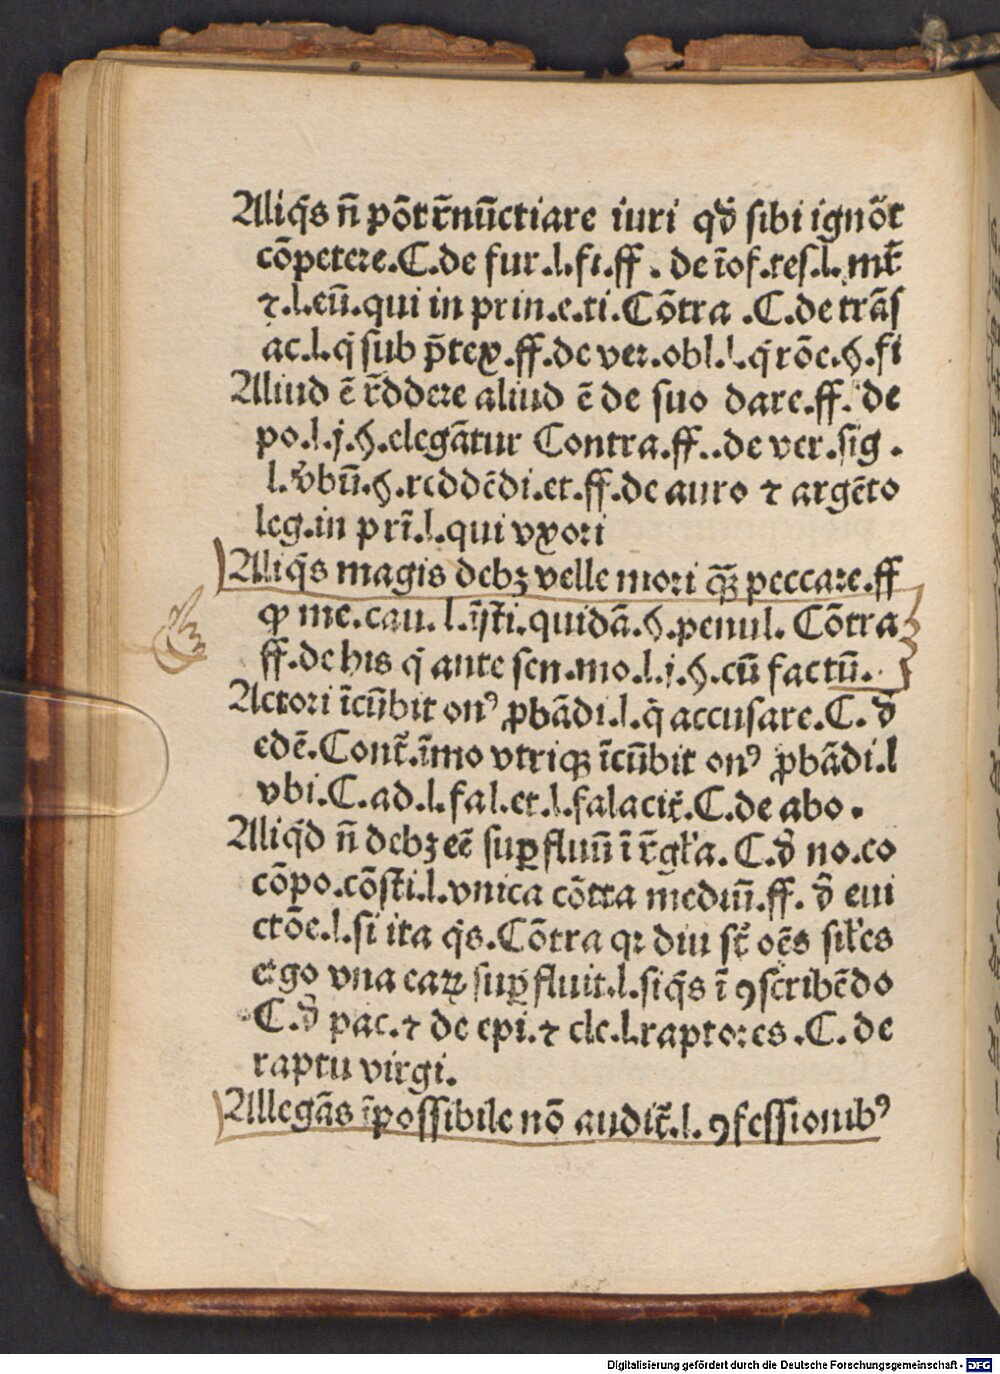 Aliq̃s n̄ põt r̃nũctiare iuri qď sibi ignõt
cõpetere.C.de fur.l.fi.ff. de ĩof.tes.l.mť
⁊.l.eũ.qui in prin.e.ti.Cõtra .C.de trãſ
ac.l.q̃ ſub p̃tex.ff.de ver.obl.l.q̃rõe.§.fi
Aliud ẽ r̃ddere aliud ẽ de ſuo dare.ff.de
po.l.j.§.elegãtur Contra.ff..de ver.ſig.
l.v̓bũ.§.reddẽdi.et.ff.de auro ⁊ argẽto
leg.in prĩ.l.qui vxori
Aliq̃s magis debꝫ velle mori q̃ꝫ peccare.ff
ꝙ me.cau.l.ĩſti.quidã.§.penul. Cõtra
ff.de his q̃ ante ſen.mo.l.j.§.cũ factũ.
Actori ĩcũbit onꝰ ꝓbãdi.l.q̃ accuſare.C. ď
edẽ.Conť.ĩmo vtriqꝫ ĩcũbit onꝰ ꝓbãdi.l
vbi.C.ad.l.fal.et.l.falaciť.C.de abo.
Aliq̃d n̄ debꝫ eẽ ſuꝑfluũ ĩ r̃gl̓a.C.ď no.co
cõpo.cõſti.l.vnica cõtra mediũ.ff. ď eui
ctõe.l.ſi ita q̃s.Cõtra qꝛ diu ſť oẽs ſil̓es
ergo vna eaꝝ ſuꝑfluit.l.ſiq̃s ĩ ꝯſcribẽdo
C.ď pac.⁊ de epi.⁊ cle.l.raptores.C. de
raptu virgi.
Allegãs ĩpoſſibile nõ audiť.l.ꝯfeſſionibꝰ
Digitalisierung gefördert durch die Deutsche Forschungsgemeinschaft - DFG